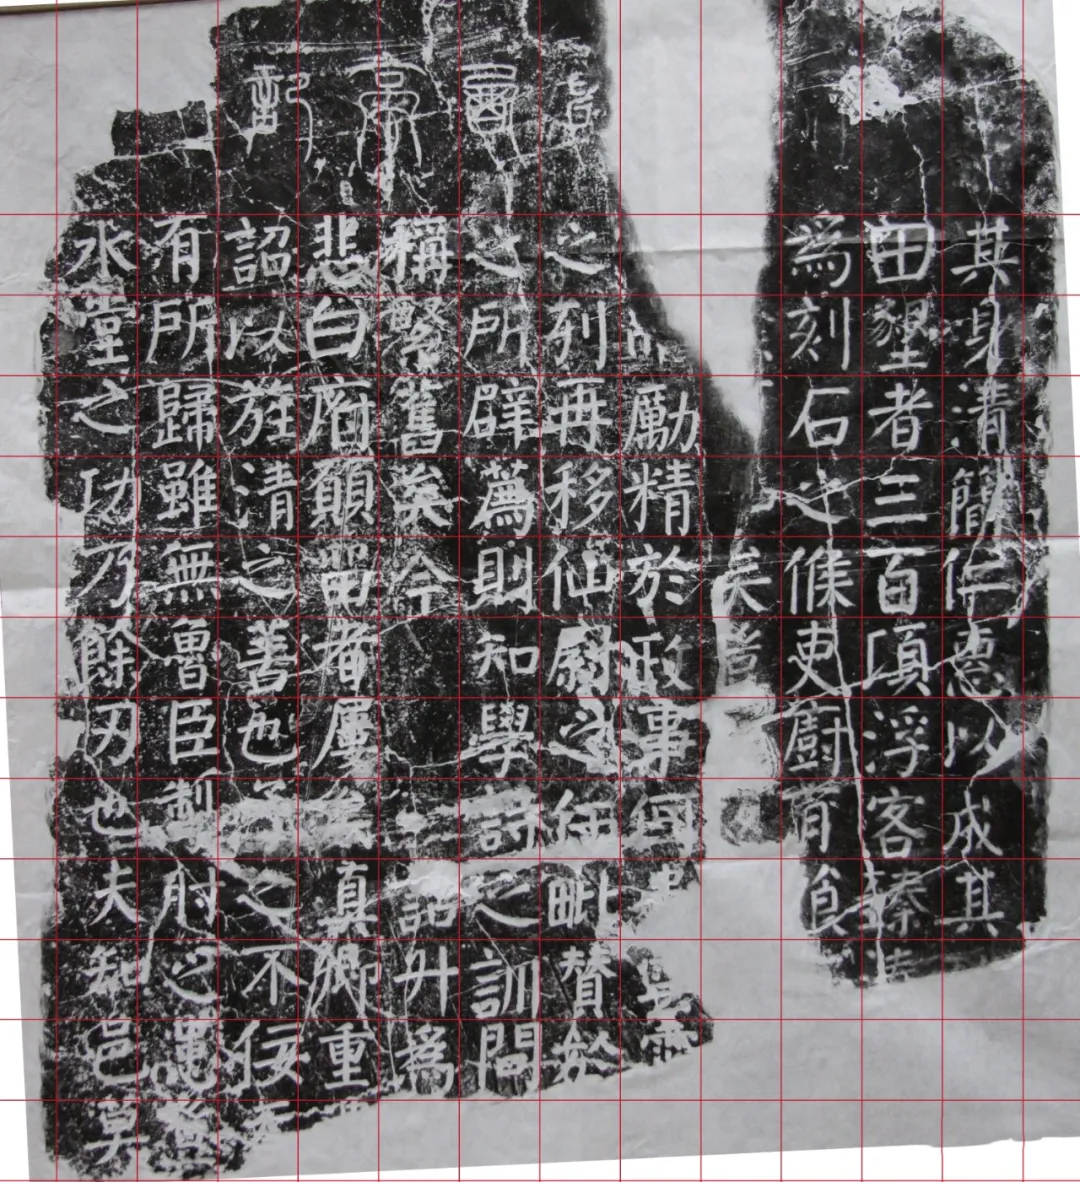 其身清簡仁惠以成其
田墾者三百頃浮客臻
為刻石之候吏廚有食
矣
勵精於政事何
之列再移仙尉之任毗贊於
之所辟薦則知學詩之訓聞
稱繄舊矣今詔升為
悲白府願留者屢矣真卿重
詔以旌清之善也之不佞
有所歸雖無魯臣掣肘之
水堂之功乃餘刃也夫知邑莫